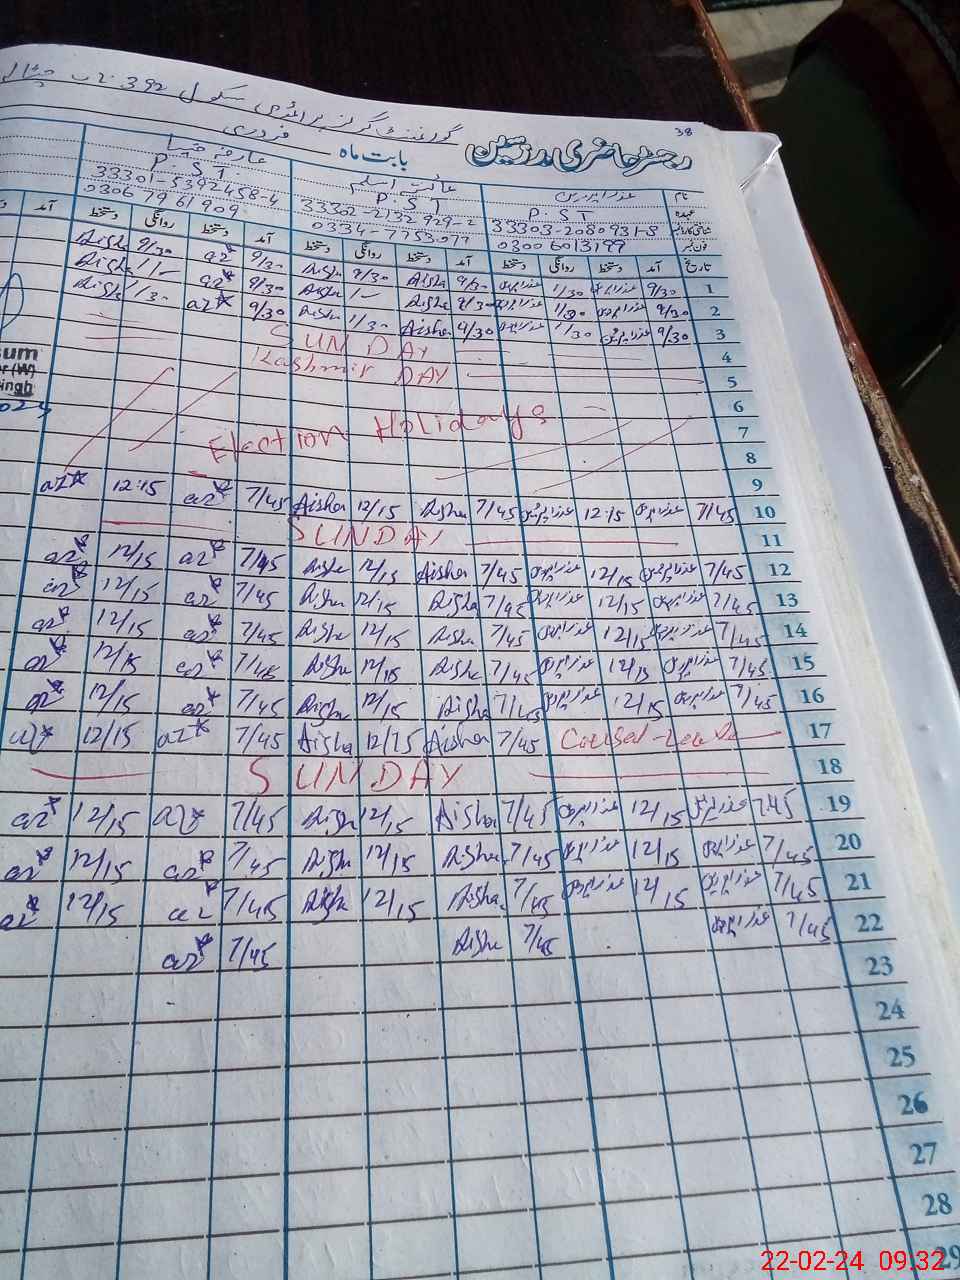 38
گورنمنٹ گرلز پرائمری سکول 392
رجسٹر حاضری مدرسین بابت ماہ فروری
نام عذرا پروین عائشہ اسلم عارفہ
عہدہ P.S.T P.S.T P.S.T
شناختی کارڈ نمبر 33303-2080931-8 33302-2132929-2 33301-5392458-4
فون نمبر 03006013199 0334-7753077 0306 7961909
تاریخ آمد دستخط روانگی دستخط آمد دستخط روانگی دستخط آمد دستخط روانگی دستخط آمد
1 9/30 عذرا پروین 1/30 عذرا پروین 9/30 Aisha 9/30 Aisha 9/30 az 9/30 Aisha
2 9/30 عذرا پروین 1/30 عذرا پروین 9/30 Aisha 1/- Aisha 9/30 az 1/- Aisha
3 9/30 عذرا پروین 1/30 عذرا پروین 9/30 Aisha 1/30 Aisha 9/30 az 1/30 Aisha
4 SUNDAY
5 Kashmir DAY
6
7 Election Holidays
8
9
10 7/45 عذرا پروین 12:15 عذرا پروین 7/45 Aisha 12/15 Aisha 7/45 az 12:15 az
11 SUNDAY
12 7/45 عذرا پروین 12/15 عذرا پروین 7/45 Aisha 12/15 Aisha 7/45 az 12/15 az
13 7/45 عذرا پروین 12/15 عذرا پروین 7/45 Aisha 12/15 Aisha 7/45 az 12/15 az
14 7/45 عذرا پروین 12/15 عذرا پروین 7/45 Aisha 12/15 Aisha 7/45 az 12/15 az
15 7/45 عذرا پروین 12/15 عذرا پروین 7/45 Aisha 12/15 Aisha 7/45 az 12/15 az
16 7/45 عذرا پروین 12/15 عذرا پروین 7/45 Aisha 12/15 Aisha 7/45 az 12/15 az
17 Causal-Leave 7/45 Aisha 12/15 Aisha 7/45 az 12/15 az
18 SUNDAY
19 7/45 عذرا پروین 12/15 عذرا پروین 7/45 Aisha 12/15 Aisha 7/45 az 12/15 az
20 7/45 عذرا پروین 12/15 عذرا پروین 7/45 Aisha 12/15 Aisha 7/45 az 12/15 az
21 7/45 عذرا پروین 12/15 عذرا پروین 7/45 Aisha 12/15 Aisha 7/45 az 12/15 az
22 7/45 عذرا پروین 7/45 Aisha 7/45 az
23
24
25
26
27
28
29
22-02-24 09.32